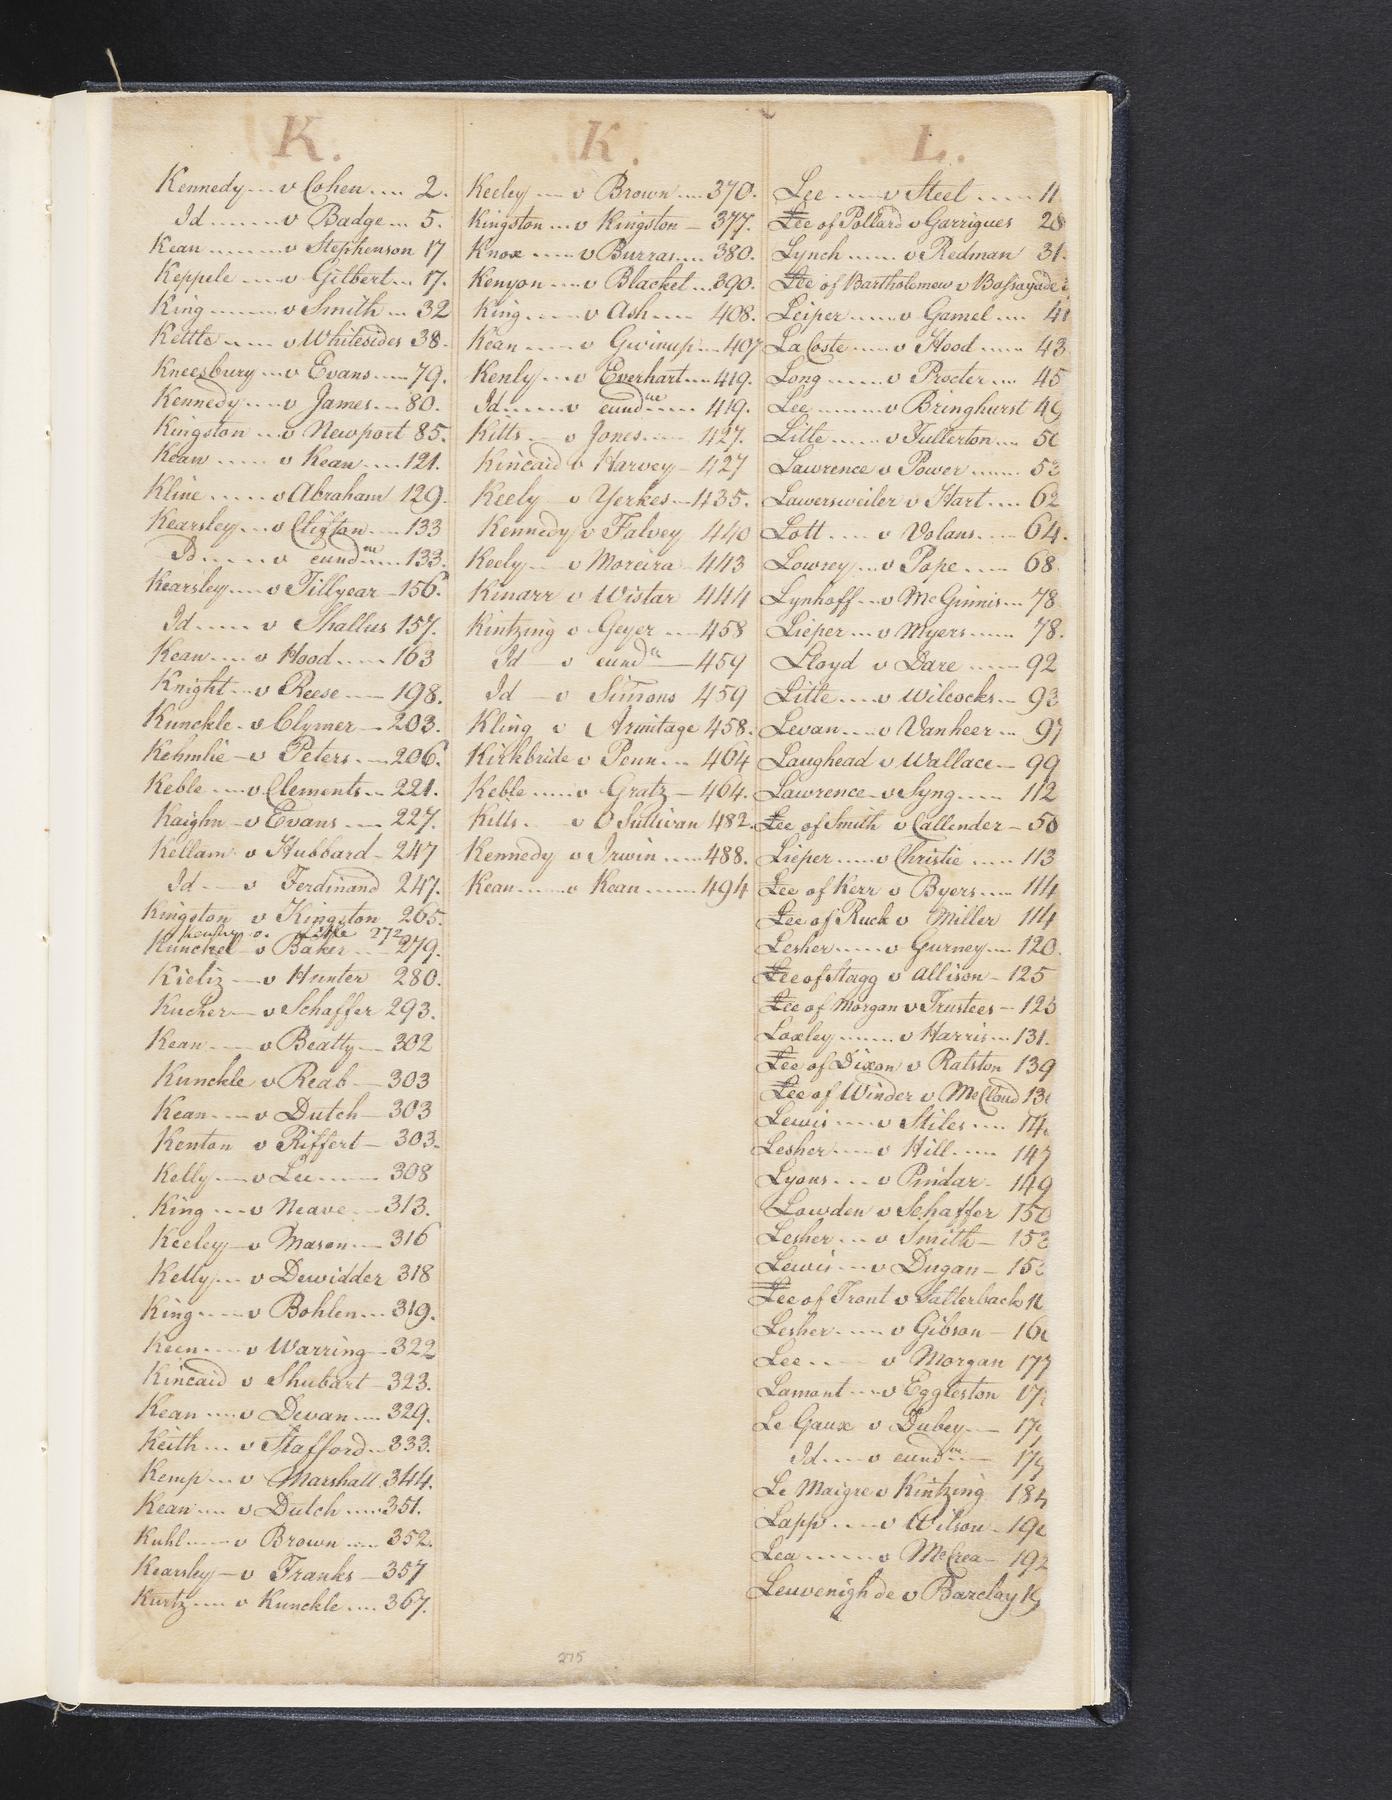 K.
Kennedy v Cohen 2.
Id v Badge 5.
Kean v Stephenson 17
Keppele v Gilbert 17.
King v Smith 32
Kettle v Whitesides 38.
Kneesbury v Evans 79.
Kennedy v James 80.
Kingston v Newport 85.
Kean v Kean 121.
Kline v Abraham 129.
Kearsley v Clifton 133
Id v eundm 133.
Kearsley v Tillyear 156.
Id v Shallus 157.
Kean v Hood 163
Knight v Reese 198.
Kunckle v Clymer 203.
Kehmlie v Peters 206.
Keble v Clements 221.
Kaighn v Evans 227.
Kellam v Hubbard 247
Id v Ferdinand 247.
Kingston v Kingston 265.
272
Kunckel v Baker 279.
Kieliz v Hunter 280.
Kucher v Schaffer 293.
Kean v Beatty 302
Kunckle v Reab 303
Kean v Dutch 303
Kenton v Riffert 303.
Kelly v Lee 308
King v Neave 313.
Keeley v Mason 316
Kelly v Dewidder 318
King v Bohlen 319.
Keen v Warring 322
Kincaid v Shubart 323.
Kean v Devan 329.
Keith v Stafford 333.
Kemp v Marshall 344.
Kean v Dutch 351.
Kuhl v Brown 352.
Kearsley v Franks 357
Kurtz v Kunckle 367.
K.
Keeley v Brown 370.
Kingston v Kingston 377.
Knox v Burras 380.
Kenyon v Blacket 390.
King v Ash 408.
Kean v Gwinup 407
Kenly v Everhart 419.
Id v eundme 419.
Kitts v Jones 427.
Kincaid v Harvey 427
Keely v Yerkes 435.
Kennedy v Falvey 440
Keely v Moreira 443
Kinarr v Wistar 444
Kintzing v Geyer 458
Id v eundm 459
Id v Simons 459
Kling v Armitage 458.
Kirkbride v Penn 464
Keble v Gratz 464.
Kitts v O Sullivan 482.
Kennedy v Irwin 488.
Kean v Kean 494
L.
Lee v Steel 11
Lee of Pollard v Garrigues 28
Lynch v Redman 31.
Lee of Bartholomew v
Leiper v Gamel 41
La Coste v Hood 43
Long v Procter 45
Lee v Bringhurst
Litle v Fullerton
Lawrence v Power 53
Lawersweiler v Hart 62
Lott v Volans 64.
Lowrey v Pope 68
Lynhoff v McGinnis 78
Lieper v Myers 78.
Lloyd v Dare 92
Litle v Wilcocks 93
Levan v Vanheer 97
Laughead v Wallace 99
Lawrence v Syng 112
Lee of Smith v Callender 50
Lieper v Christie 113
Lee of Kerr v Byers 114
Lee of Ruck v Miller 114
Lesher v Gurney 120.
Lee of Stagg v Allison 125
Lee of Morgan v Trustees 125
Loxley v Harris 131.
Lee of Dixon v Ralston 139
Lee of Winder v McCloud
Lewis v Stiles
Lesher v Hill 147
Lyons v Pindar 149
Lowden v Schaffer 150
Lesher v Smith 153
Lewis v Dugan
Lee of Tront v Satterback
Lesher v Gibson
Lee v Morgan 177
Lamont v Eggleston
Le Gaux v Dubey
Id v eundm
Le Maigre v Kintzing 184
Lapp v Wilson
Lea v McCrea 192
Leuvenigh de v Barclay
275